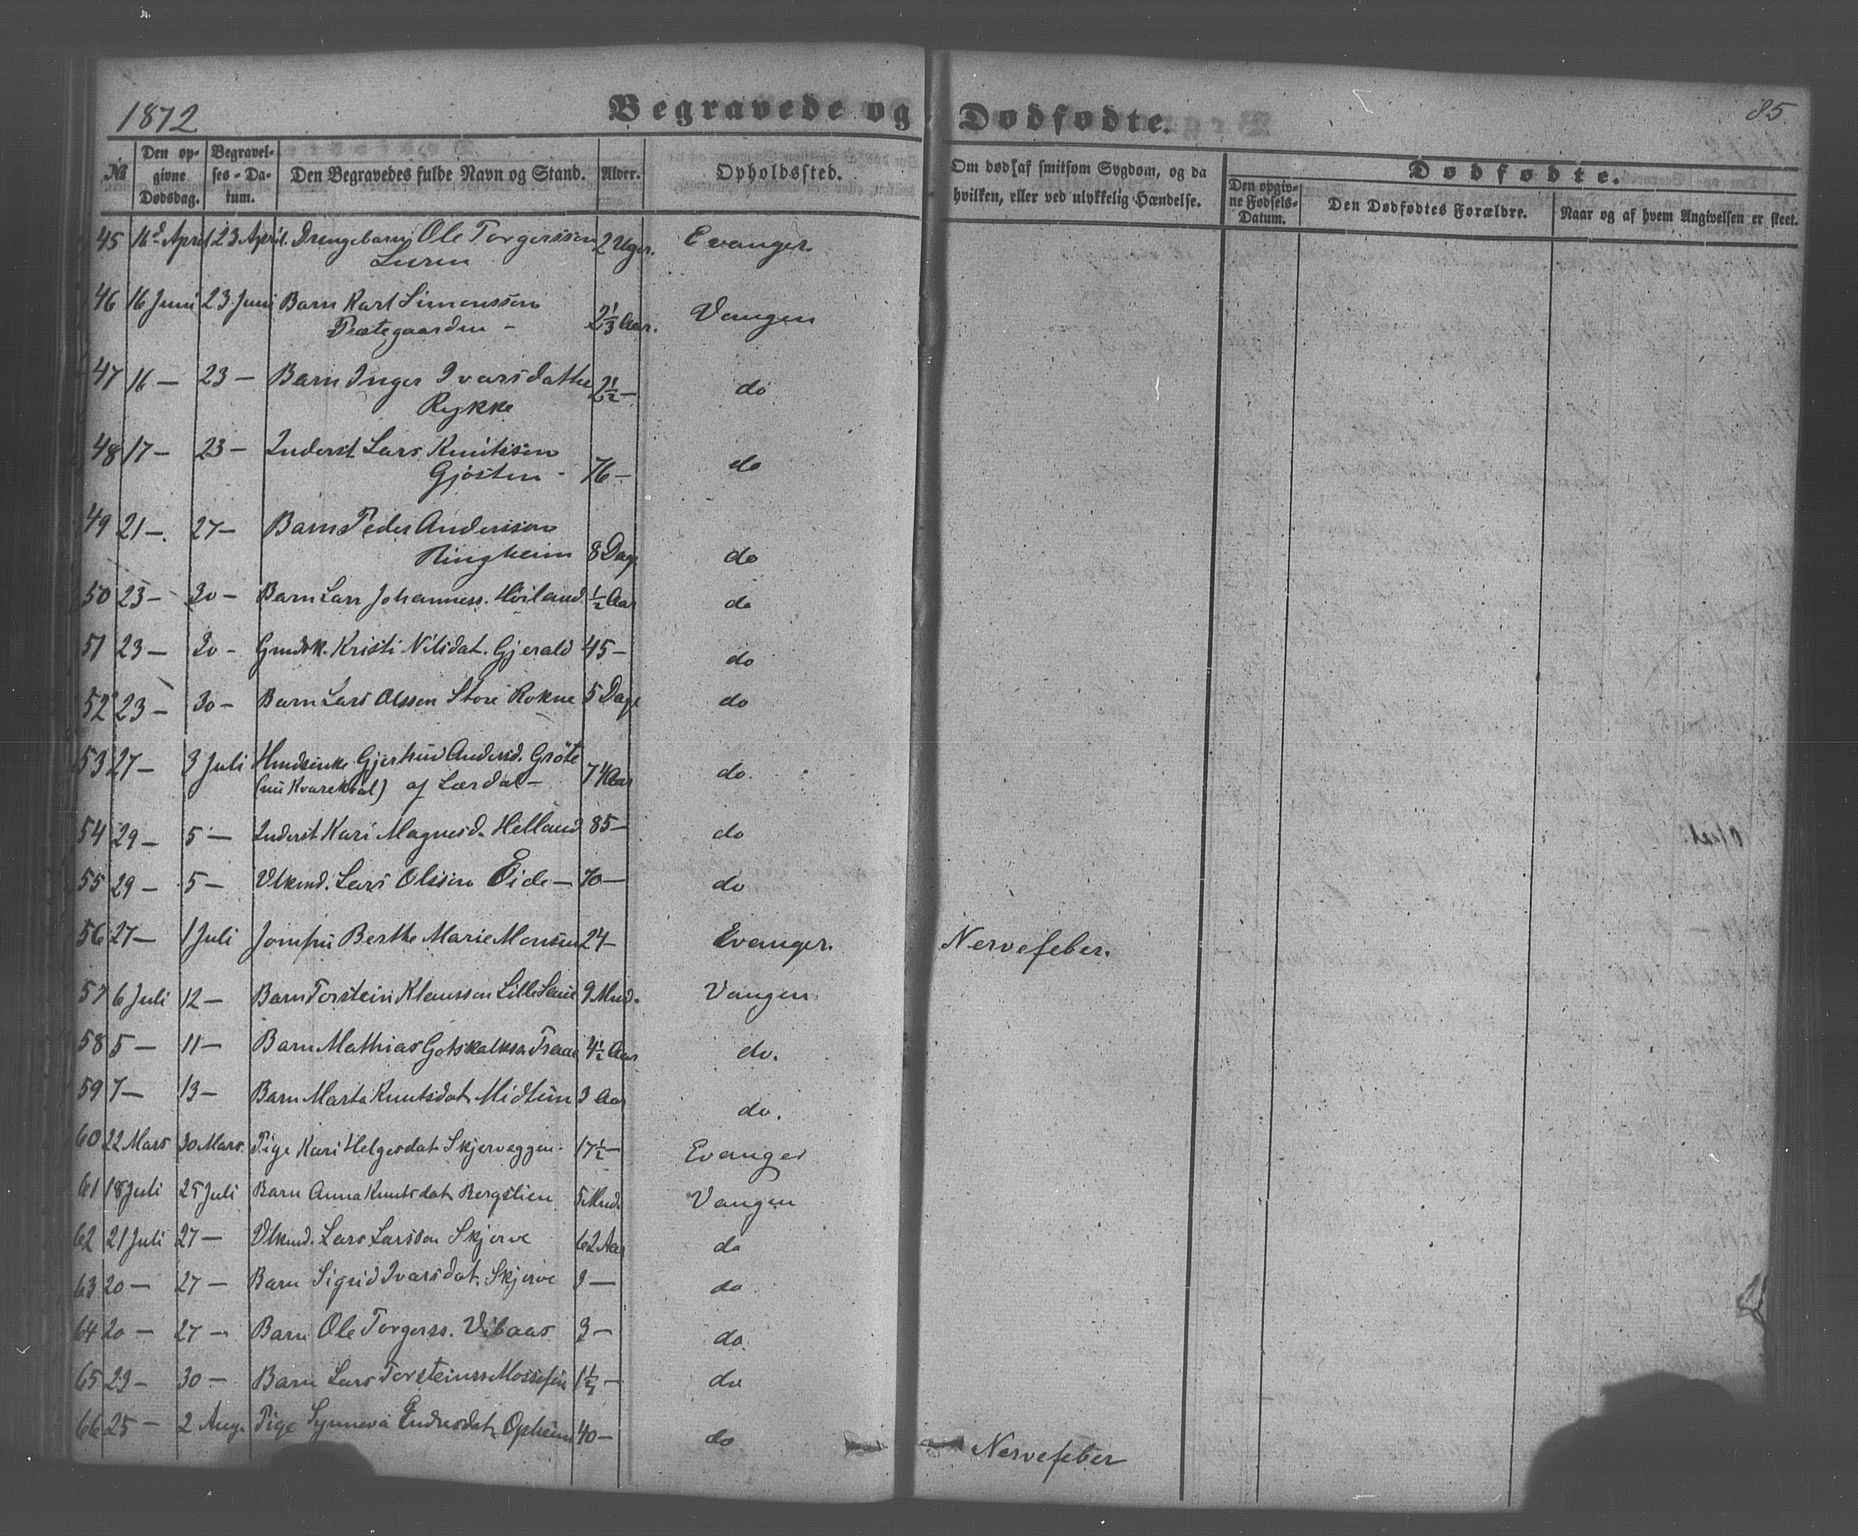 1872
Begravede og Dødfødte.
85.
No
Den opgivne Dødsdag.
Begravelses-Datum.
Den Begravedes fulde Navn og Stand.
Alder.
Opholdssted.
Om død af smitsom Sygdom, og da hvilken, eller ved ulykkelig Hændelse.
Dødfødte.
Den opgivne Fødsels-Datum.
Den Dødfødtes Forældre.
Naar og af hvem Angivelsen er skeet.
45 16d April 23 April. Drengebarn Ole Torgerssen 2 Uger. Evanger.
46 16 Juni 23 Juni Barn Karl Simonssen
Præstegaarden - 2 1/3 Aar. Vangen
47 16 — 23 — Barn Inger Ivarsdatter
Rykke 2 1/2 — do
48 17 — 23 — Inderst Lars Knutssen
Gjøsten - 76 — do
49 21 —. 27 — Barn Peder Anderssen
Ringheim 8 Dage do
50 23 — 30 — Barn Lars Johanness. Høiland 1/2 Aar do
51 23 — 30 - Gmdsk. Kristi Nilsdat. Gjerald 45 — do
52 23 — 30 — Barn Lars Olssen Store Rokne 5 Dage do
53 27 — 3 Juli Hmdsenke Gjertrud Andersd. Grøte
(nu Kvarekval) af Lærdal — 74 Aar do.
54 29 — 5 — Inderst Kari Magnesd. Helland 85 — do
55 29 — 5 — Vlkmd. Lars Olssen Eide — 70 — do
56 27 — 1 Juli Jomfru Berthe Marie Monsen 24 — Evanger. Nervefeber.
57 6 Juli 12 — Barn Torstein Klaussen Lille Saue 9 Mnd. Vangen
58 5 — 11 — Barn Mathias Gotskalkssn Traae 4 1/2 Aar do.
59 7 — 13 — Barn Marta Knutsdat. Midtun 3 Aar do.
60 22 Mars 30 Mars. Pige Kari Helgesdat Skjerveggen. 17 1/2 — Evanger
61 18 Juli 25 Juli Barn Anna Knutsdat. Bergslien 5 Mnd. Vangen
62 21 Juli 27 — Vlkmd. Lars Larssen Skjerve 62 Aar do
63 20 — 27 — Barn Sigrid Ivarsdat. Skjerve 3 — do
64 20 — 27 — Barn Ole Torgerss. Vibaas 3 — do.
65 23 — 30 — Barn Lars Torsteinss Mossefin 1 1/2 — do
66 25 — 2 Aug. Pige Synneva Endresdat. Opheim 40 — do Nervefeber